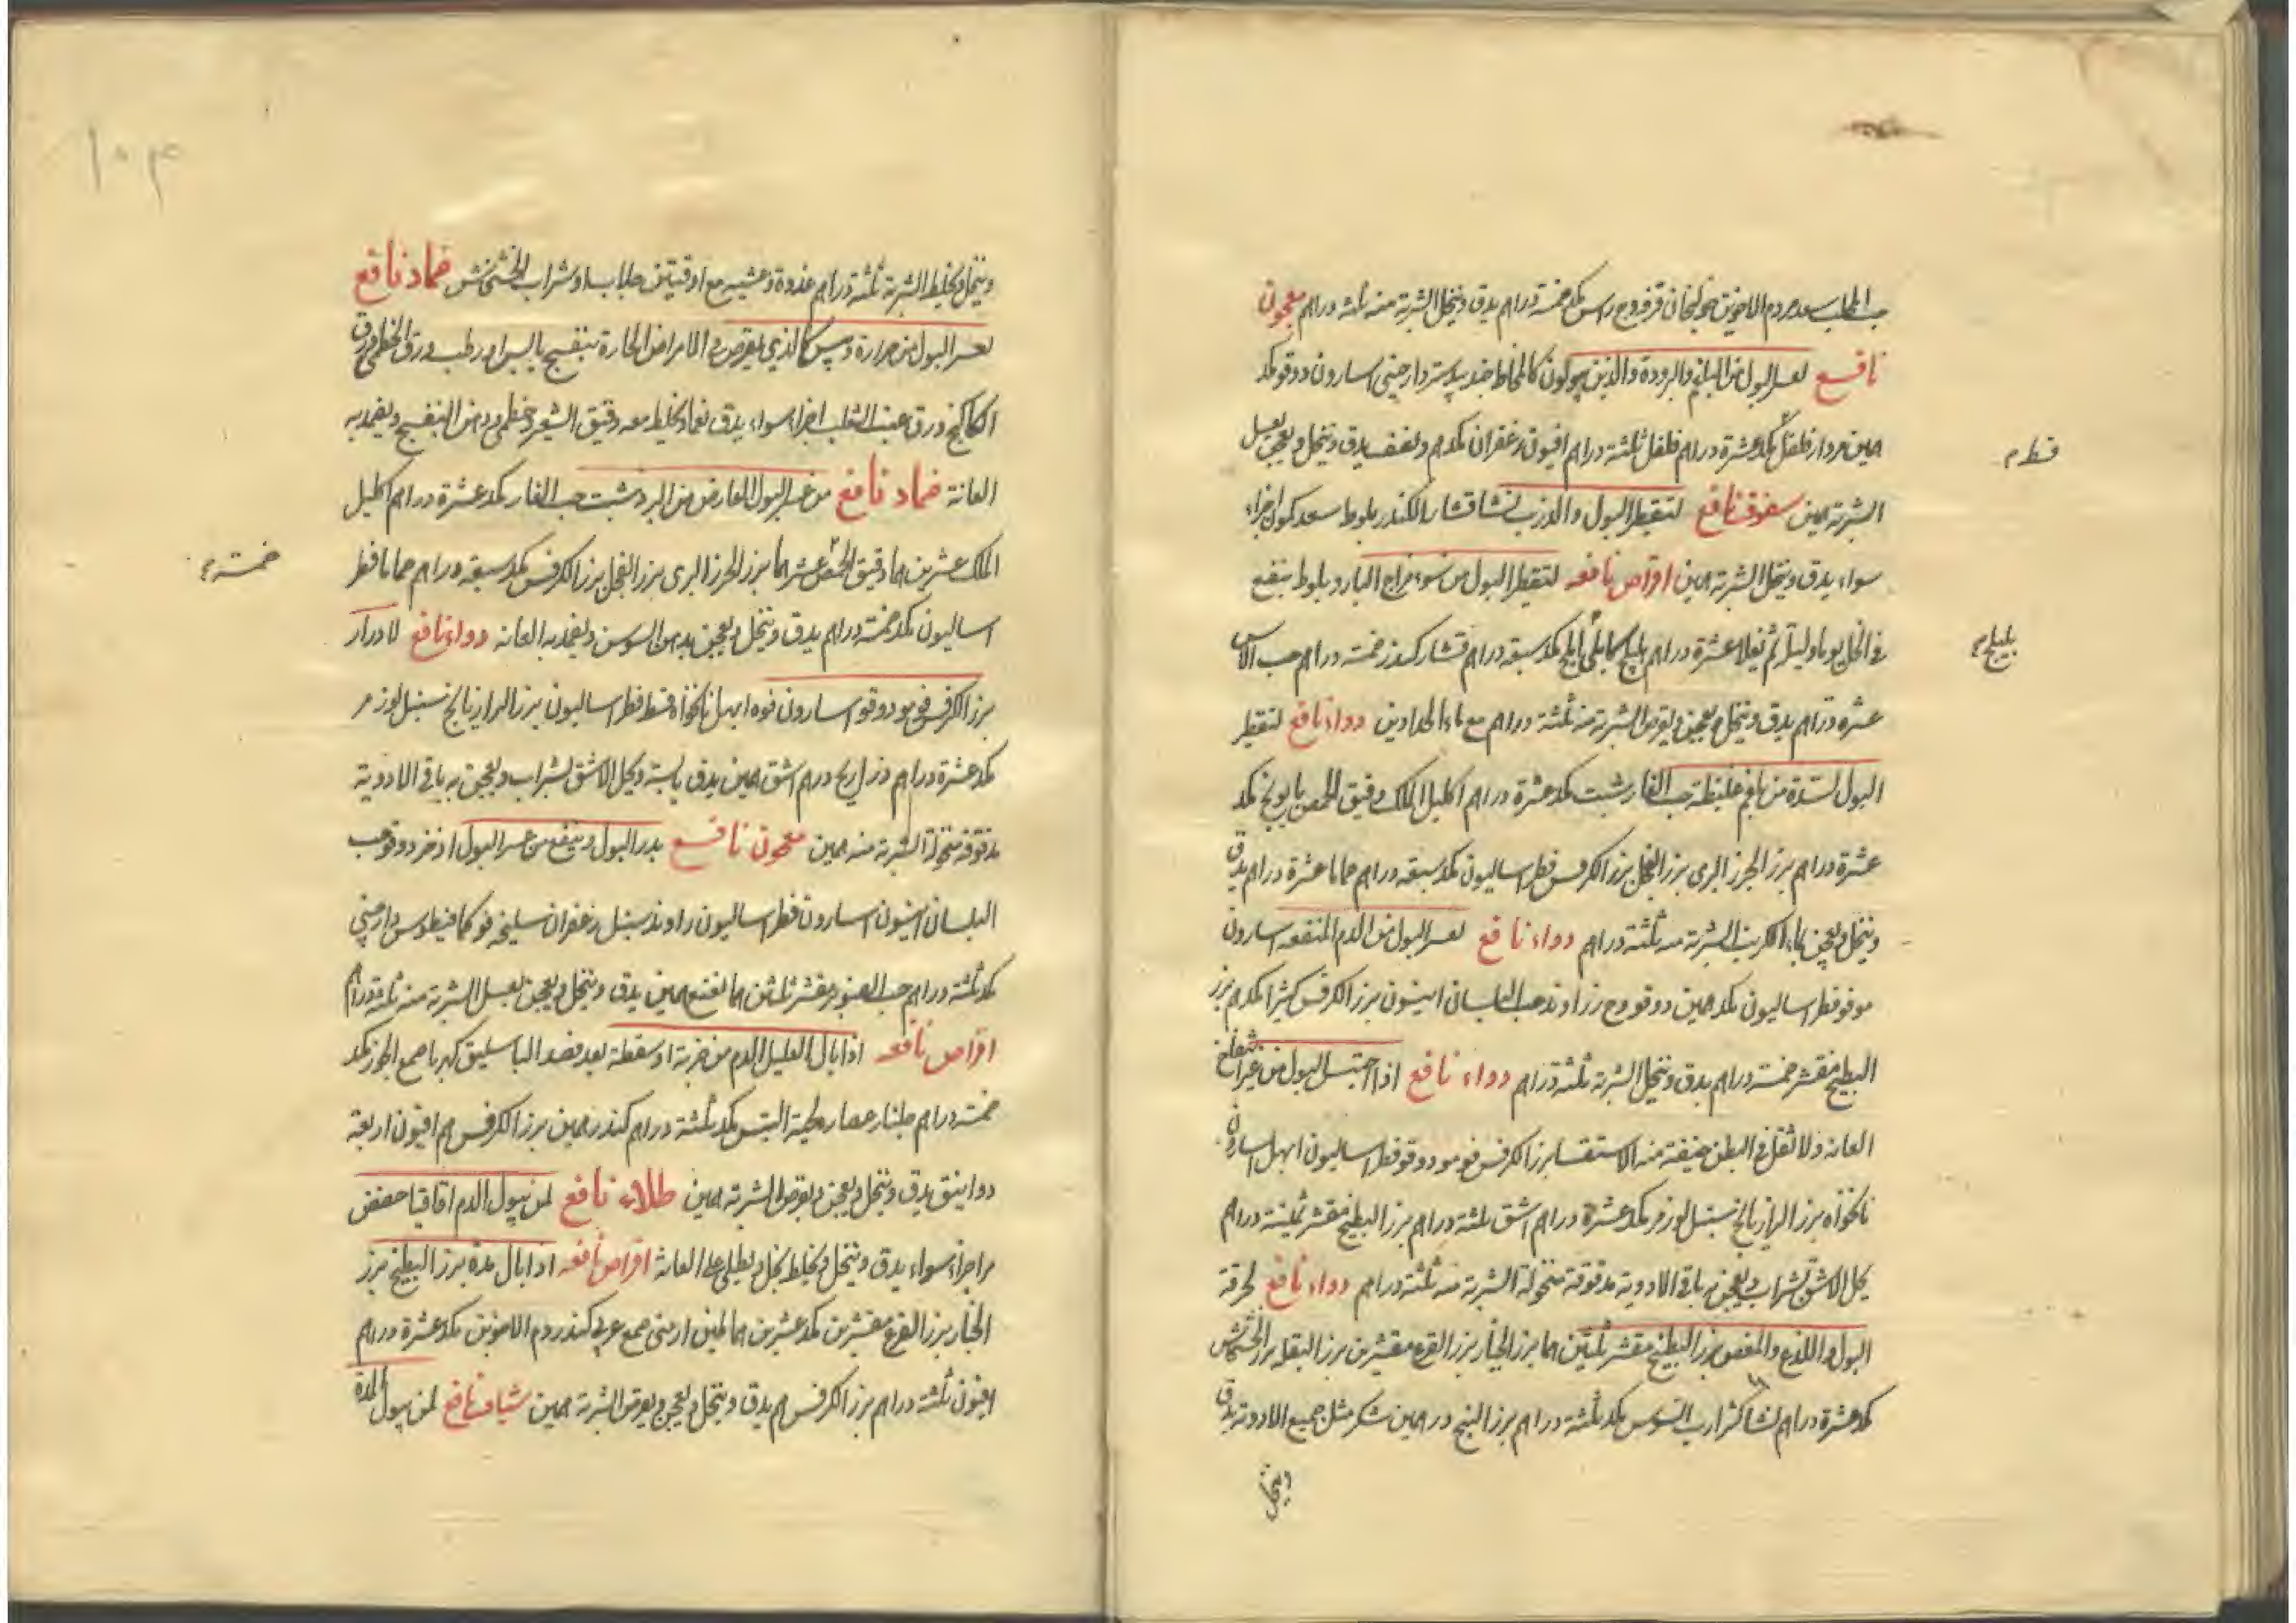 حب المحلب دم الاخوين خولنجان قرفة وج راسن مكد خمسة دراهم يدق وينخل الشربة منه ثلثة دراهم معجون
نافع لعسر البول من البلغم والبرودة والذين يبولون كالمخاط جندبيدستر دارصيني اسارون دوقو مكد
همين دارفلفل مكد عشرة دراهم فلفل ثلثة دراهم افيون زعفران مكدم ونصف يدق وينخل ويعجن بعسل
قسط م
الشربة همين سفوف نافع لتقطير البول والذرب نشا قشار الكندر بلوط سعد كمون اجزاء
سواء يدق وينخل الشربة همين اقراص نافعه لتقطير البول من سوء مزاج البارد بلوط ينقع
في الخل يوما وليلة ثم يقلا عشرة دراهم هليلج كابلي املج مكد سبعة دراهم قشار كندر خمسة دراهم حب الآس
بليلج م
عشرة دراهم يدق وينخل ويعجن ويقرص الشربة منه ثلثة دراهم مع ماء الحدادين دواء نافع لتقطير
البول لسدة من بلغم غليظة حب الغار شبت مكد عشرة دراهم اكليل الملك دقيق الحمص بابونج مكد
عشرة دراهم بزر الجزر البرى بزر الفجل بزر الكرفس فطراساليون مكد سبعة دراهم حماما عشرة دراهم يدق
وينخل ويعجن بماء الكرنب الشربة منه ثلثة دراهم دواء نافع لعسر البول من الدم المنعقد اسارون
مو فو فطراساليون مكد همين دوقو وج زراوند حب البلسان انيسون بزر الكرفس كثيرا مكدم بزر
البطيخ مقشر خمسة دراهم يدق وينخل الشربة ثلثة دراهم دواء نافع اذا احتبس البول من غير انتفاخ
العانه ولا ثقل في البطن خيفة منه الاستسقا بزر الكرفس فو مو دوقو فطراساليون ابهل اسارون
نانخواه بزر الرازيانج سنبل لوز مر مكد عشرة دراهم اشق ثلثة دراهم بزر البطيخ مقشر ثمنية دراهم
يحل الاشق بشراب ويعجن به باقي الادوية مدقوقة منخولة الشربة منه ثلثة دراهم دواء نافع لحرقة
البول واللذع والمغص بزر البطيخ مقشر ثلثين هما بزر الخيار بزر القرع مقشرين بزر البقله بزر الخشخاش
مكد عشرة دراهم نشا كثيرا رب السوس مكد ثلثة دراهم بزر البنج درهمين سكر مثل جميع الادوية يدق
وينخل
وينخل ويخلط الشربة ثلثة دراهم غدوة وعشية مع اوقيتين جلاب او شراب الخشخاش ضماد نافع
لعسر البول من حرارة ويبس كالذي يعرض في الامراض الحارة بنفسج يابس او رطب ورق الخطمي ورق
الكاكنج ورق عنب الثعلب اجزاء سواء يدق نعما ويخلط معه دقيق الشعير وخطمي ودهن البنفسج ويضمد به
العانة ضماد نافع من عسر البول العارض من البرد شبت حب الغار مكد عشرة دراهم اكليل
الملك عشرين هما دقيق الحمص عشر هما بزر الجزر البرى بزر الفجل بزر الكرفس مكد سبعة دراهم حماما فطر
خمسة م
اساليون مكد خمسة دراهم يدق وينخل ويعجن بدهن السوسن ويضمد به العانه دواء نافع لادرار
بزر الكرفس فو مو دوقو اسارون فوه ابهل نانخواه قسط فطراساليون بزر الرازيانج سنبل لوز مر
مكد عشرة دراهم ذراريح درهم اشق همين يدق يابسة ويحل الاشق بشراب ويعجن به باقي الادوية
مدقوقة منخولة الشربة منه همين معجون نافع يدر البول وينفع من عسر البول اذخر دوقو حب
البلسان انيسون اسارون فطراساليون راوند سنبل زعفران سليخه فو كمافيطوس دارصيني
مكد ثلثة دراهم حب الصنوبر مقشر ثلثين هما نعنع همين يدق وينخل ويعجن بعسل الشربة منه ثلثة دراهم
اقراص نافعه اذا بال العليل الدم من ضربة او سقطة بعد فصد الباسليق كهربا صمغ الجوز مكد
خمسة دراهم جلنار عصاره لحية التيس مكد ثلثة دراهم كندر همين بزر الكرفس هم افيون اربعة
دوانيق يدق وينخل ويعجن ويقرص الشربة همين طلاء نافع لمن يبول الدم اقاقيا حضض
مر اجزاء سواء يدق وينخل ويخلط بخل ويطلي على العانة اقراص نافعه اذا بال مدة بزر البطيخ بزر
الخيار بزر القرع مقشرين مكد عشرين هما طين ارمنى صمغ عربي كندر دم الاخوين مكد عشرة دراهم
افيون ثلثة دراهم بزر الكرفس هم يدق وينخل ويعجن ويقرص الشربة همين شياف نافع لمن يبول المدة